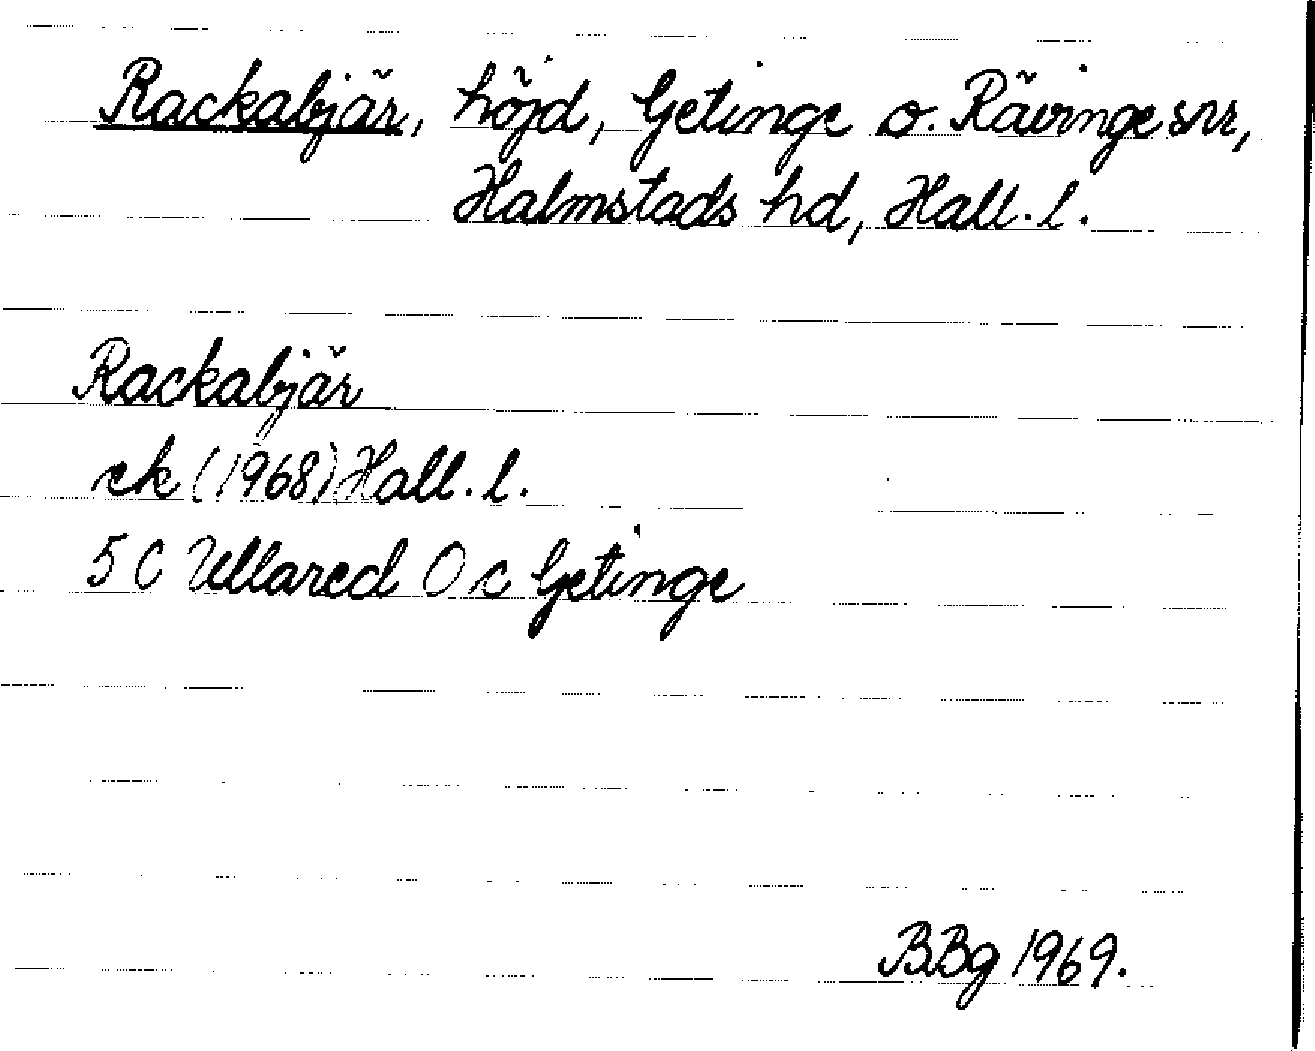 Rackabjär, höjd, Getinge o. Rävinge snr,
Halmstads hd, Hall. l.
Rackabjär
ek (1968) Hall. l.
5 C Ullared O c Getinge
BBg 1969.